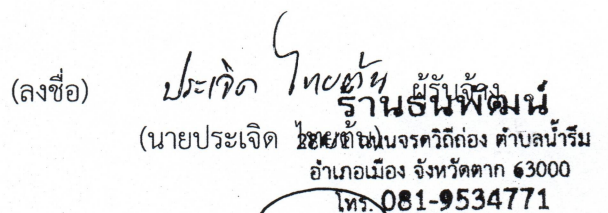 (ลงชื่อ) ประเจิด ไทยตัน ผู้รับจ้าง
ร้านธนพัฒน์
(นายประเจิด ไทยตัน)
ถนนจรดวิถีถ่อง ตำบลน้ำรึม
อำเภอเมือง จังหวัดตาก 63000
โทร. 081-9534771